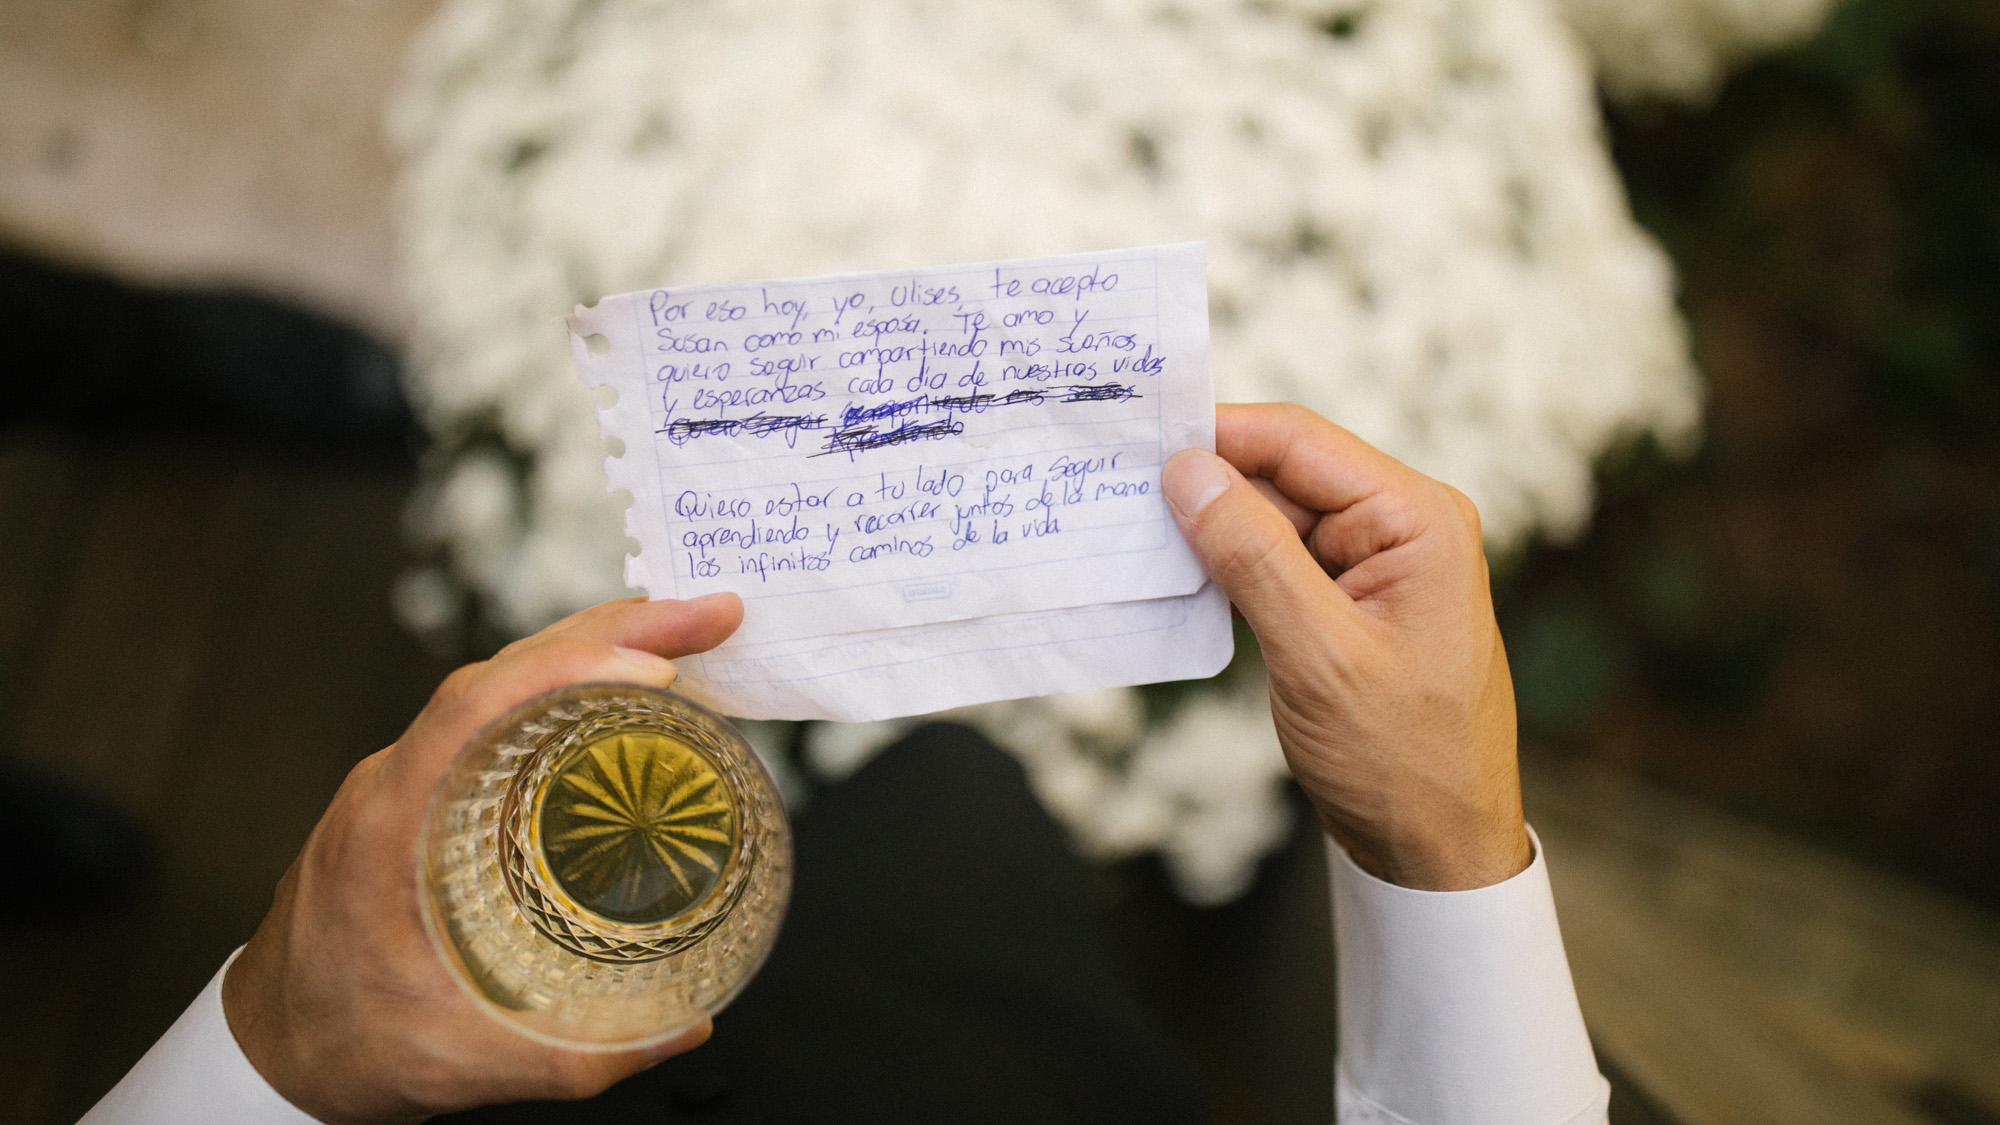 Por eso hoy, yo, Ulises, te acepto
Susan como mi esposa. Te amo y
quiero seguir compartiendo mis sueños
y esperanzas cada día de nuestras vidas
Quiero seguir compartiendo mis sueños
Aprendiendo
Quiero estar a tu lado para seguir
aprendiendo y recorrer juntos de la mano
los infinitos caminos de la vida